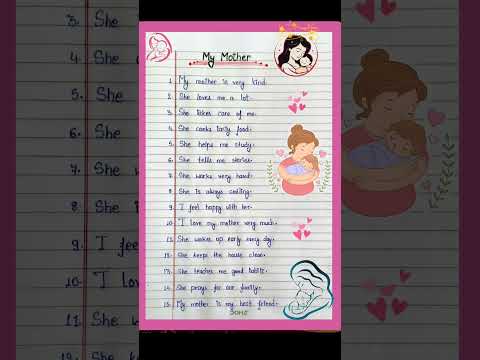 My Mother
1. My mother is very kind.
2. She loves me a lot.
3. She takes care of me.
4. She cooks tasty food.
5. She helps me study.
6. She tells me stories.
7. She works very hard.
8. She is always smiling.
9. I feel happy with her.
10. I love my mother very much.
11. She wakes up early every day.
12. She keeps the house clean.
13. She teaches me good habits.
14. She prays for our family.
15. My mother is my best friend.